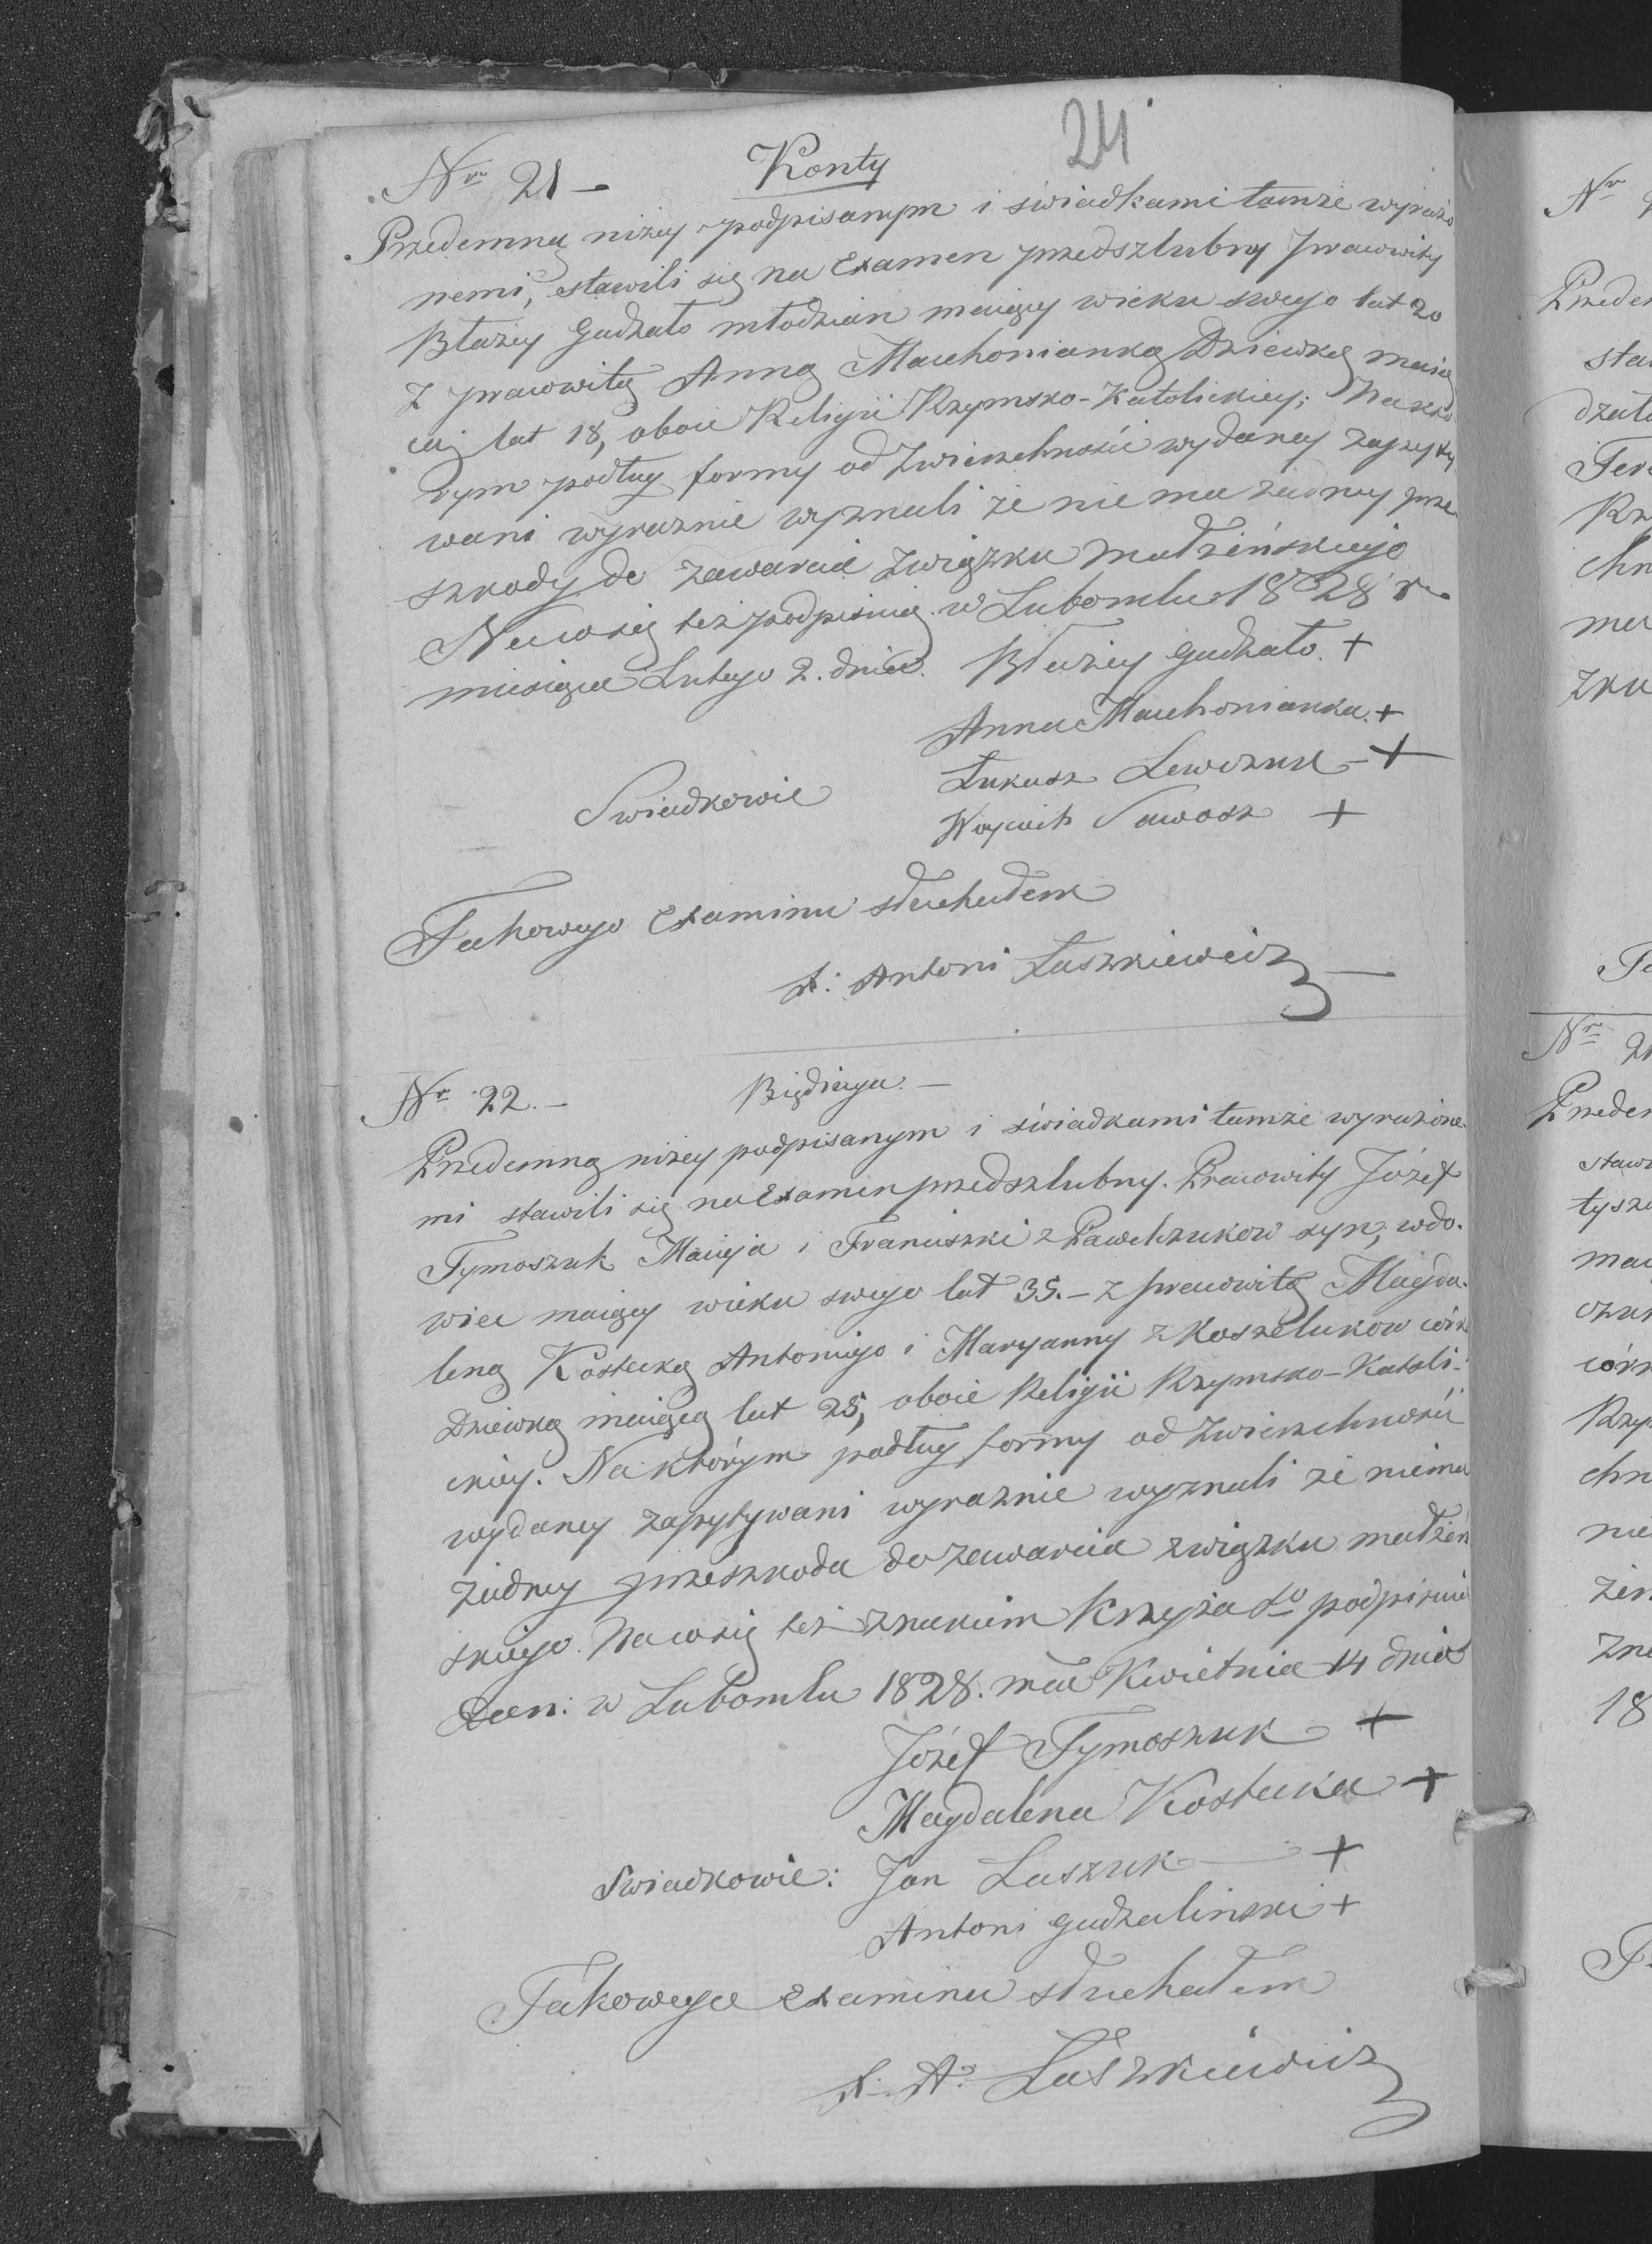 24
Nro 21 – Konty
Przedemną niżey podpisanym i świadkami tamże wyrażo
nemi, stawili się na Examen przedszlubny Pracowity
Błażey Gudzało młodzian maiący wieku swego lat 20
z pracowitą Anną Maichonianką Dziewką maią
cą lat 18, oboie Religii Rzymsko-Katolickiey; Na któ
rym podług formy od Zwierzchności wydaney zapyty
wani wyraznie wyznali że nie ma żadney prze
szkody do zawarcia związku małżeńskiego
Na co się też podpisuią w Lubomlu 1828 r
miesiąca Lutego 2. dnia. Błażey Gudzało. +
Anna Maichonianka. +
Swiadkowie Łukasz Lewczuk – +
Woyciech Sawosz +
Takowego Examinu słuchałem
X: Antoni Łaszkiewicz
Nr 22. – Bindiuga. –
Przedemną niżey podpisanym i świadkami tamże wyrażone-
mi stawili się na Examen przedszlubny. Pracowity Józef
Tymoszuk Macieja i Franciszki z Pawelczukow syn, wdo-
wiec maiący wieku swego lat 35. – z pracowitą Magda-
leną Kostecką Antoniego i Maryanny z Koszelukow córk
Dziewką maiącą lat 25, oboie Religii Rzymsko-Katoli-
ckiey. Na którym podług formy od Zwierzchności
wydaney zapytywani wyraznie wyznali że niema
żadney przeszkoda do zawarcia związku małżeń
skiego. Na co się też znakiem Krzyża So podpisuią
Dan: w Lubomlu 1828. mca Kwietnia 14 dnia
Józef Tymoszuk +
Magdalena Kostecka +
Swiadkowie: Jan Laszuk – +
Antoni Gudzalinski +
Takowego examinu słuchałem
X. A. Łaszkiewicz
Nr
Przedem
sta
dzało
Ter
Rz
chn
ma
zku
Ta
Nr 2
Przedem
staw
tysz
ma
czu
córk
Rzy
chn
nie
żeń
zna
18
T